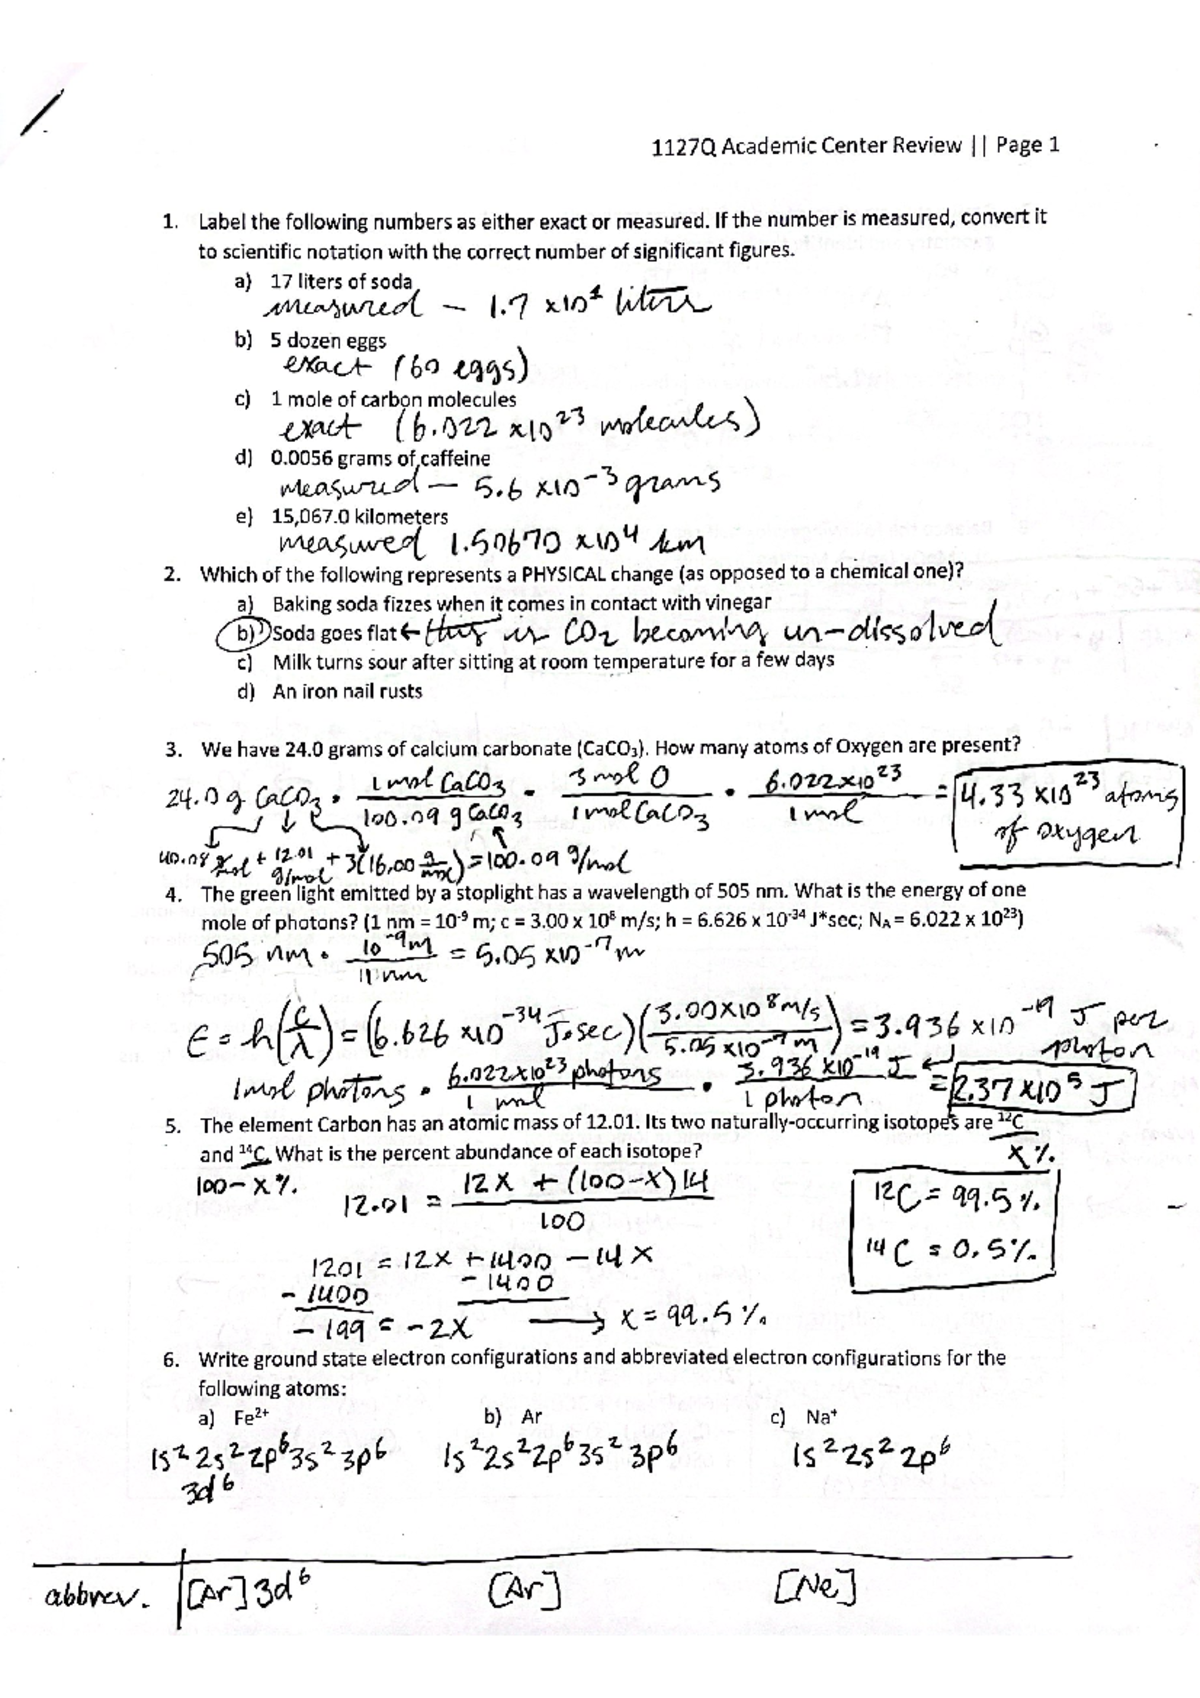 1127Q Academic Center Review || Page 1
1. Label the following numbers as either exact or measured. If the number is measured, convert it
to scientific notation with the correct number of significant figures.
a) 17 liters of soda
measured – 1.7 x10¹ liters
b) 5 dozen eggs
exact (60 eggs)
c) 1 mole of carbon molecules
exact (6.022 x10²³ molecules)
d) 0.0056 grams of caffeine
measured – 5.6 x10⁻³ grams
e) 15,067.0 kilometers
measured 1.50670 x10⁴ km
2. Which of the following represents a PHYSICAL change (as opposed to a chemical one)?
a) Baking soda fizzes when it comes in contact with vinegar
b) Soda goes flat ← this is CO₂ becoming un-dissolved
c) Milk turns sour after sitting at room temperature for a few days
d) An iron nail rusts
3. We have 24.0 grams of calcium carbonate (CaCO₃). How many atoms of Oxygen are present?
24.0 g CaCO₃ · 1 mol CaCO₃ / 100.09 g CaCO₃ · 3 mol O / 1 mol CaCO₃ · 6.022x10²³ / 1 mol = 4.33 x10²³ atoms of oxygen
40.08 g/mol + 12.01 g/mol + 3(16.00 g/mol) = 100.09 g/mol
4. The green light emitted by a stoplight has a wavelength of 505 nm. What is the energy of one
mole of photons? (1 nm = 10⁻⁹ m; c = 3.00 x 10⁸ m/s; h = 6.626 x 10⁻³⁴ J*sec; NA = 6.022 x 10²³)
505 nm · 10⁻⁹ m / 1 nm = 5.05 x10⁻⁷ m
E = h(c/λ) = (6.626 x10⁻³⁴ J·sec)(3.00x10⁸ m/s / 5.05 x10⁻⁷ m) = 3.936 x10⁻¹⁹ J per photon
1 mol photons · 6.022x10²³ photons / 1 mol · 3.936 x10⁻¹⁹ J / 1 photon = 2.37 x10⁵ J
5. The element Carbon has an atomic mass of 12.01. Its two naturally-occurring isotopes are ¹²C
x%
and ¹⁴C. What is the percent abundance of each isotope?
100-x%
12.01 = 12x + (100-x)14 / 100
¹²C = 99.5%
¹⁴C = 0.5%
1201 = 12x + 1400 - 14x
- 1400 - 1400
- 199 = - 2x → x = 99.5%
6. Write ground state electron configurations and abbreviated electron configurations for the
following atoms:
a) Fe²⁺ b) Ar c) Na⁺
1s²2s²2p⁶3s²3p⁶ 1s²2s²2p⁶3s²3p⁶ 1s²2s²2p⁶
3d⁶
abbrev. [Ar]3d⁶ [Ar] [Ne]